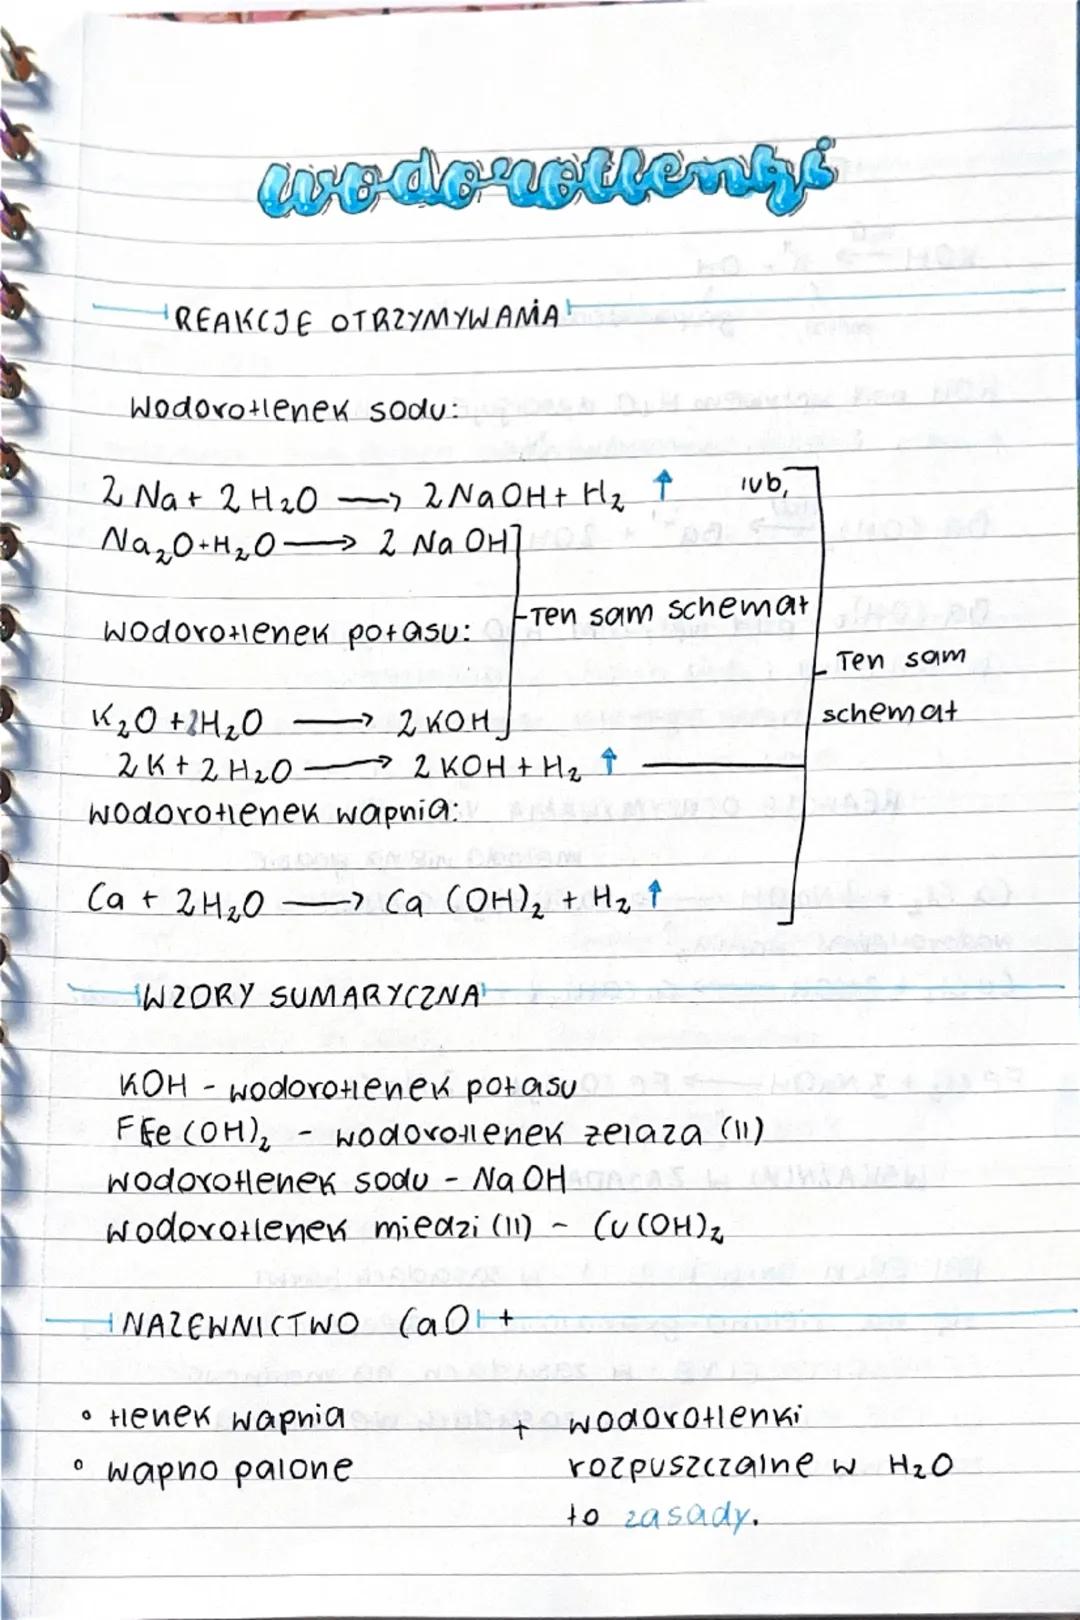 wodorotlenki
REAKCJE OTRZYMYWANIA
Wodorotlenek sodu:
2 Na + 2 H₂O ⟶ 2 NaOH + H₂ ↑ lub,
Na₂O + H₂O ⟶ 2 NaOH
Ten sam schemat
wodorotlenek potasu:
Ten sam
schemat
K₂O + H₂O ⟶ 2 KOH
2 K + 2 H₂O ⟶ 2 KOH + H₂ ↑
wodorotlenek wapnia:
Ca + 2 H₂O ⟶ Ca (OH)₂ + H₂ ↑
WZORY SUMARYCZNA
KOH - wodorotlenek potasu
Fe (OH)₂ - wodorotlenek zelaza (II)
wodorotlenek sodu - NaOH
wodorotlenek miedzi (II) - Cu(OH)₂
NAZEWNICTWO CaO +
• tlenek wapnia
• wapno palone
+ wodorotlenki
rozpuszczalne w H₂O
to zasady.